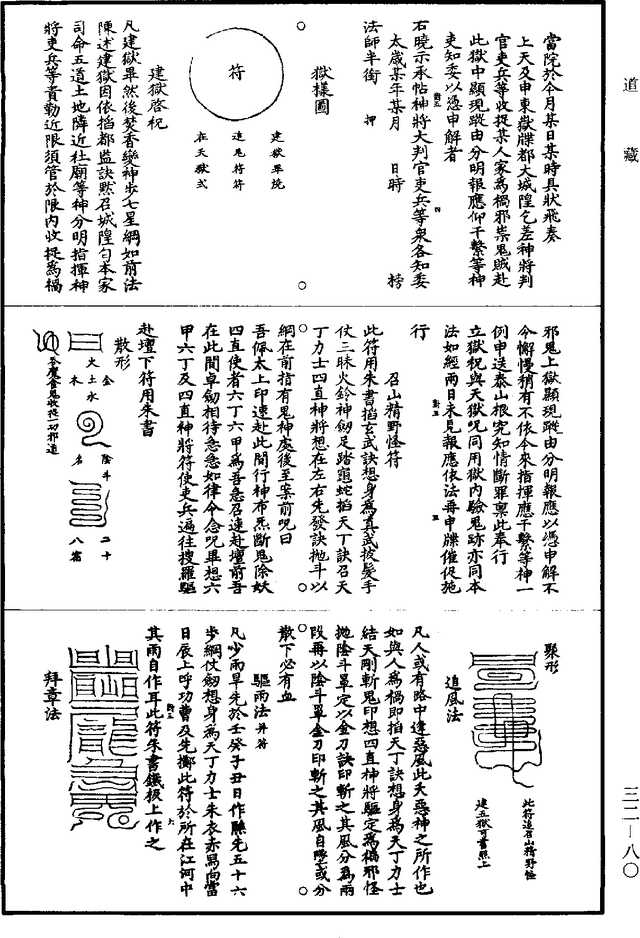 道藏
三二—八〇
當院於今月某日某時具狀飛奏
上天及申東嶽牒都大城隍乞差神將判
官吏兵等收捉某人家為禍邪祟鬼賊赴
此獄中顯現蹤由分明報應仰干繫等神
吏知委以憑申解者
右曉示承帖神將大判官吏兵等衆各知委
太歲某年某月　日時　榜
法師半銜　押
獄樣圖
符
建獄畢燒
追鬼符符
在天獄式
建獄啓祝
凡建獄畢然後焚香變神步七星綱如前法
陳述建獄因依掐都監訣默召城隍勾本家
司命五道土地隣近社廟等神分明指揮神
將吏兵等責勒近限須管於限內收捉為禍
邪鬼上獄顯現蹤由分明報應以憑申解不
令懈慢稍有不依今來指揮應干繫等神一
例申送泰山根究知情斷罪稟此奉行
立獄祝與天獄呪同用獄內驗鬼跡亦同本
法如經兩日未見報應依法再申牒催促施
行
召山精野怪符
此符用朱書掐玄武訣想身為真武披髮手
仗三昧火鈴神劒足踏龜蛇掐天丁訣召天
丁力士四直神將想在左右先發訣拋斗以
綱在前指有鬼神處後至案前呪曰
吾佩太上印速赴此間行神布炁斷鬼除妖
四直使者六丁六甲為吾急召速赴壇前吾
在此間卓劒相待急急如律令念呪畢想六
甲六丁及四直神將符使吏兵遍往搜羅驅
赴壇下符用朱書
散形
金
火土水
木
陰斗
名
二十
八宿
聚形
此符追召山精野怪
建五獄可書無上
追風法
凡人或有路中逢惡風此天惡神之所作也
如與人為禍即掐天丁訣想身為天丁力士
結天剛斬鬼印想四直神將驅定為禍邪怪
拋陰斗罩定以金刀訣印斬之其風分為兩
段再以陰斗罩金刀印斬之其風自墜或分
散下必有血
驅雨法并符
凡少雨旱先於壬癸子丑日作醮先五十六
步綱仗劒想身為天丁力士朱衣赤舄向當
日辰上呼功曹及先擲此符於所在江河中
其雨自作耳此符朱書鐵板上作之
拜章法